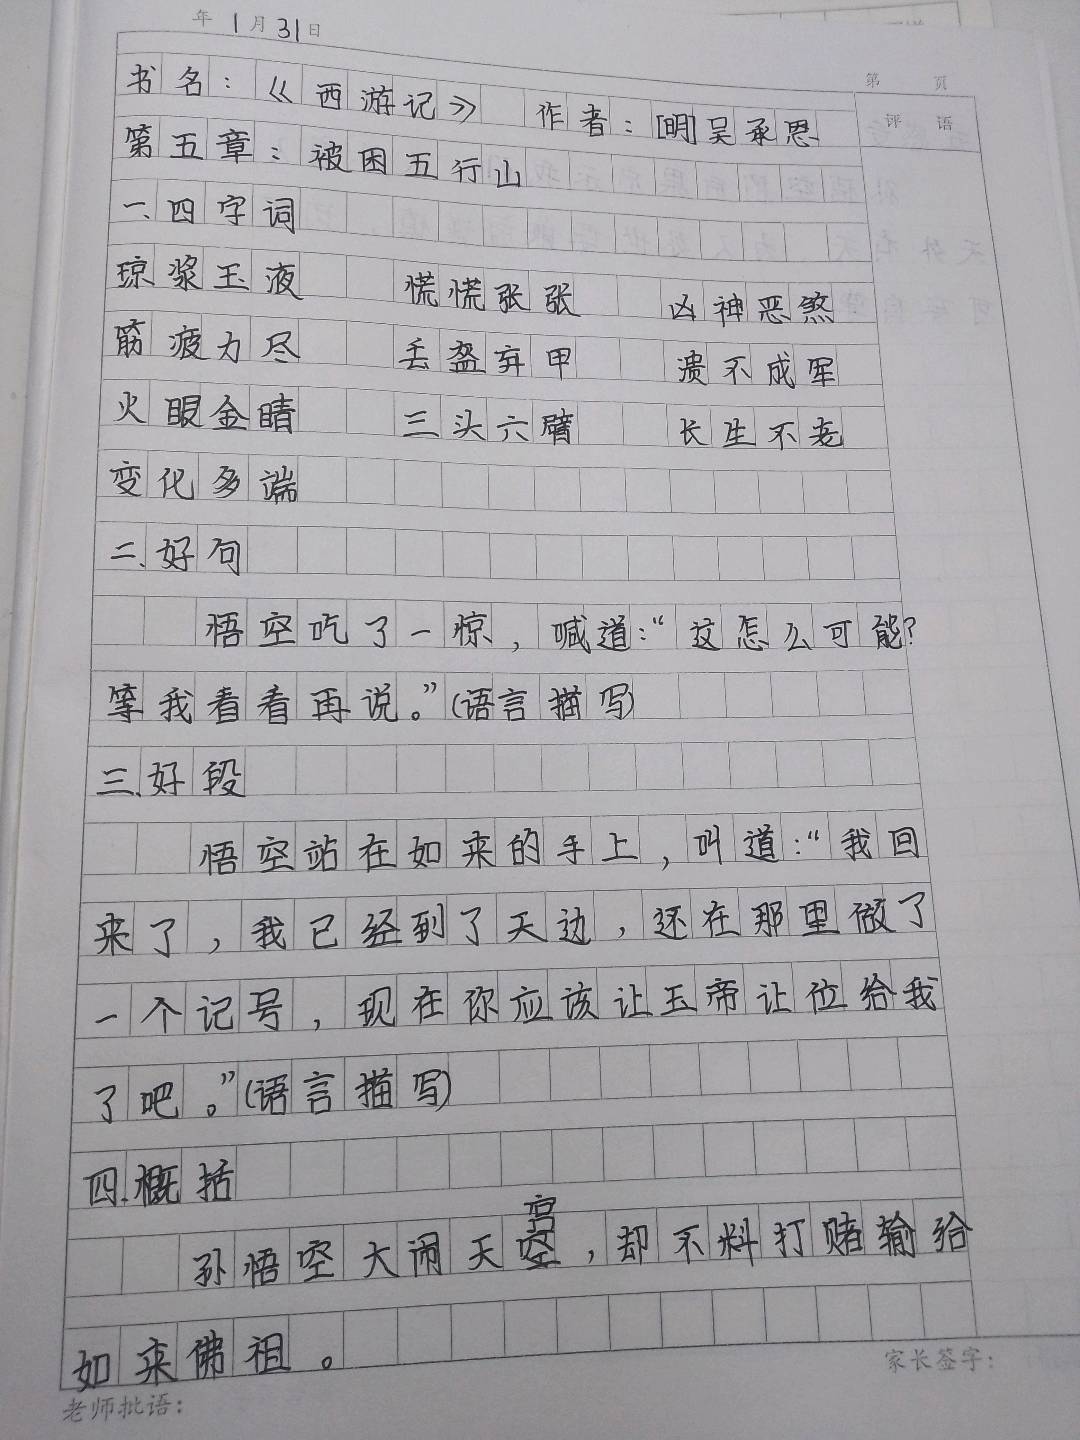 年 1月31日
第 页
评 语
书名：《西游记》 作者：[明]吴承恩
第五章：被困五行山
一.四字词
琼浆玉液 慌慌张张 凶神恶煞
筋疲力尽 丢盔弃甲 溃不成军
火眼金睛 三头六臂 长生不老
变化多端
二.好句
悟空吃了一惊，喊道：“这怎么可能？
等我看看再说。”(语言描写)
三.好段
悟空站在如来的手上，叫道：“我回
来了，我已经到了天边，还在那里做了
一个记号，现在你应该让玉帝让位给我
了吧。”(语言描写)
四.概括
宫
孙悟空大闹天空，却不料打赌输给
如来佛祖。
家长签字：
老师批语：